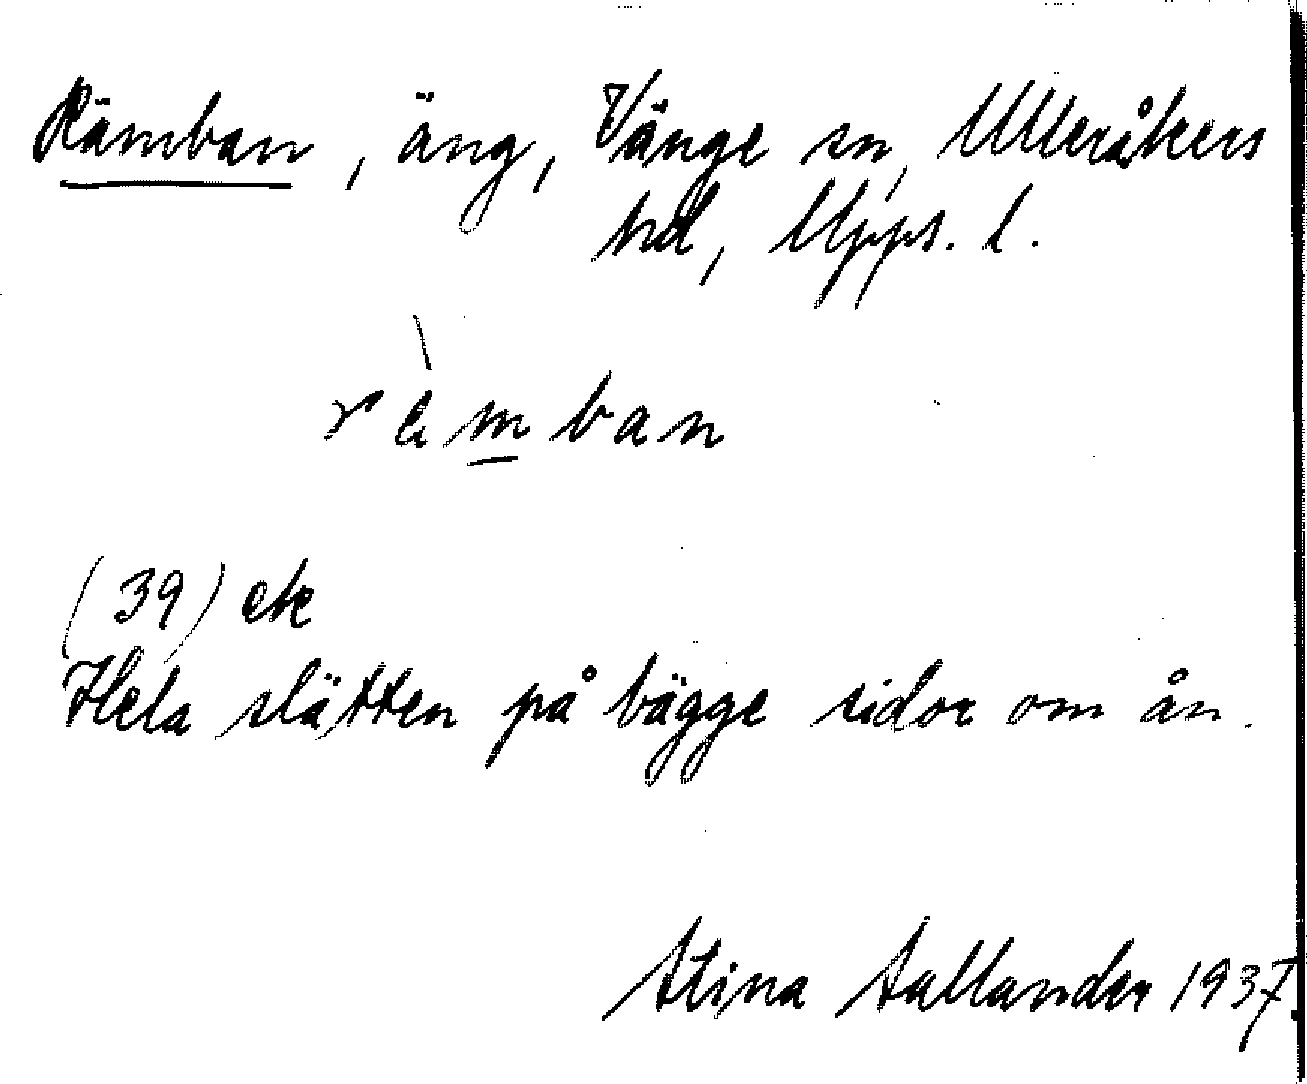 Rämban, äng, Vänge sn, Ulleråkers
hd, Upps. l.
rèmban
(39) ek
Hela slätten på bägge sidor om ån.
Stina Sallander 1937.